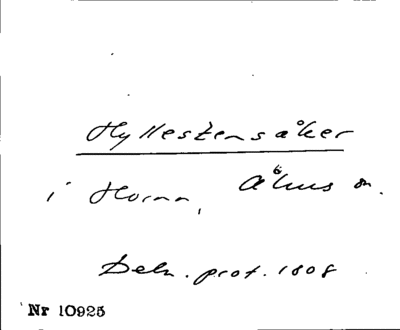 Hyllestensåker
i Horna, Åhus sn.
Deln. prot. 1808
Nr 10925